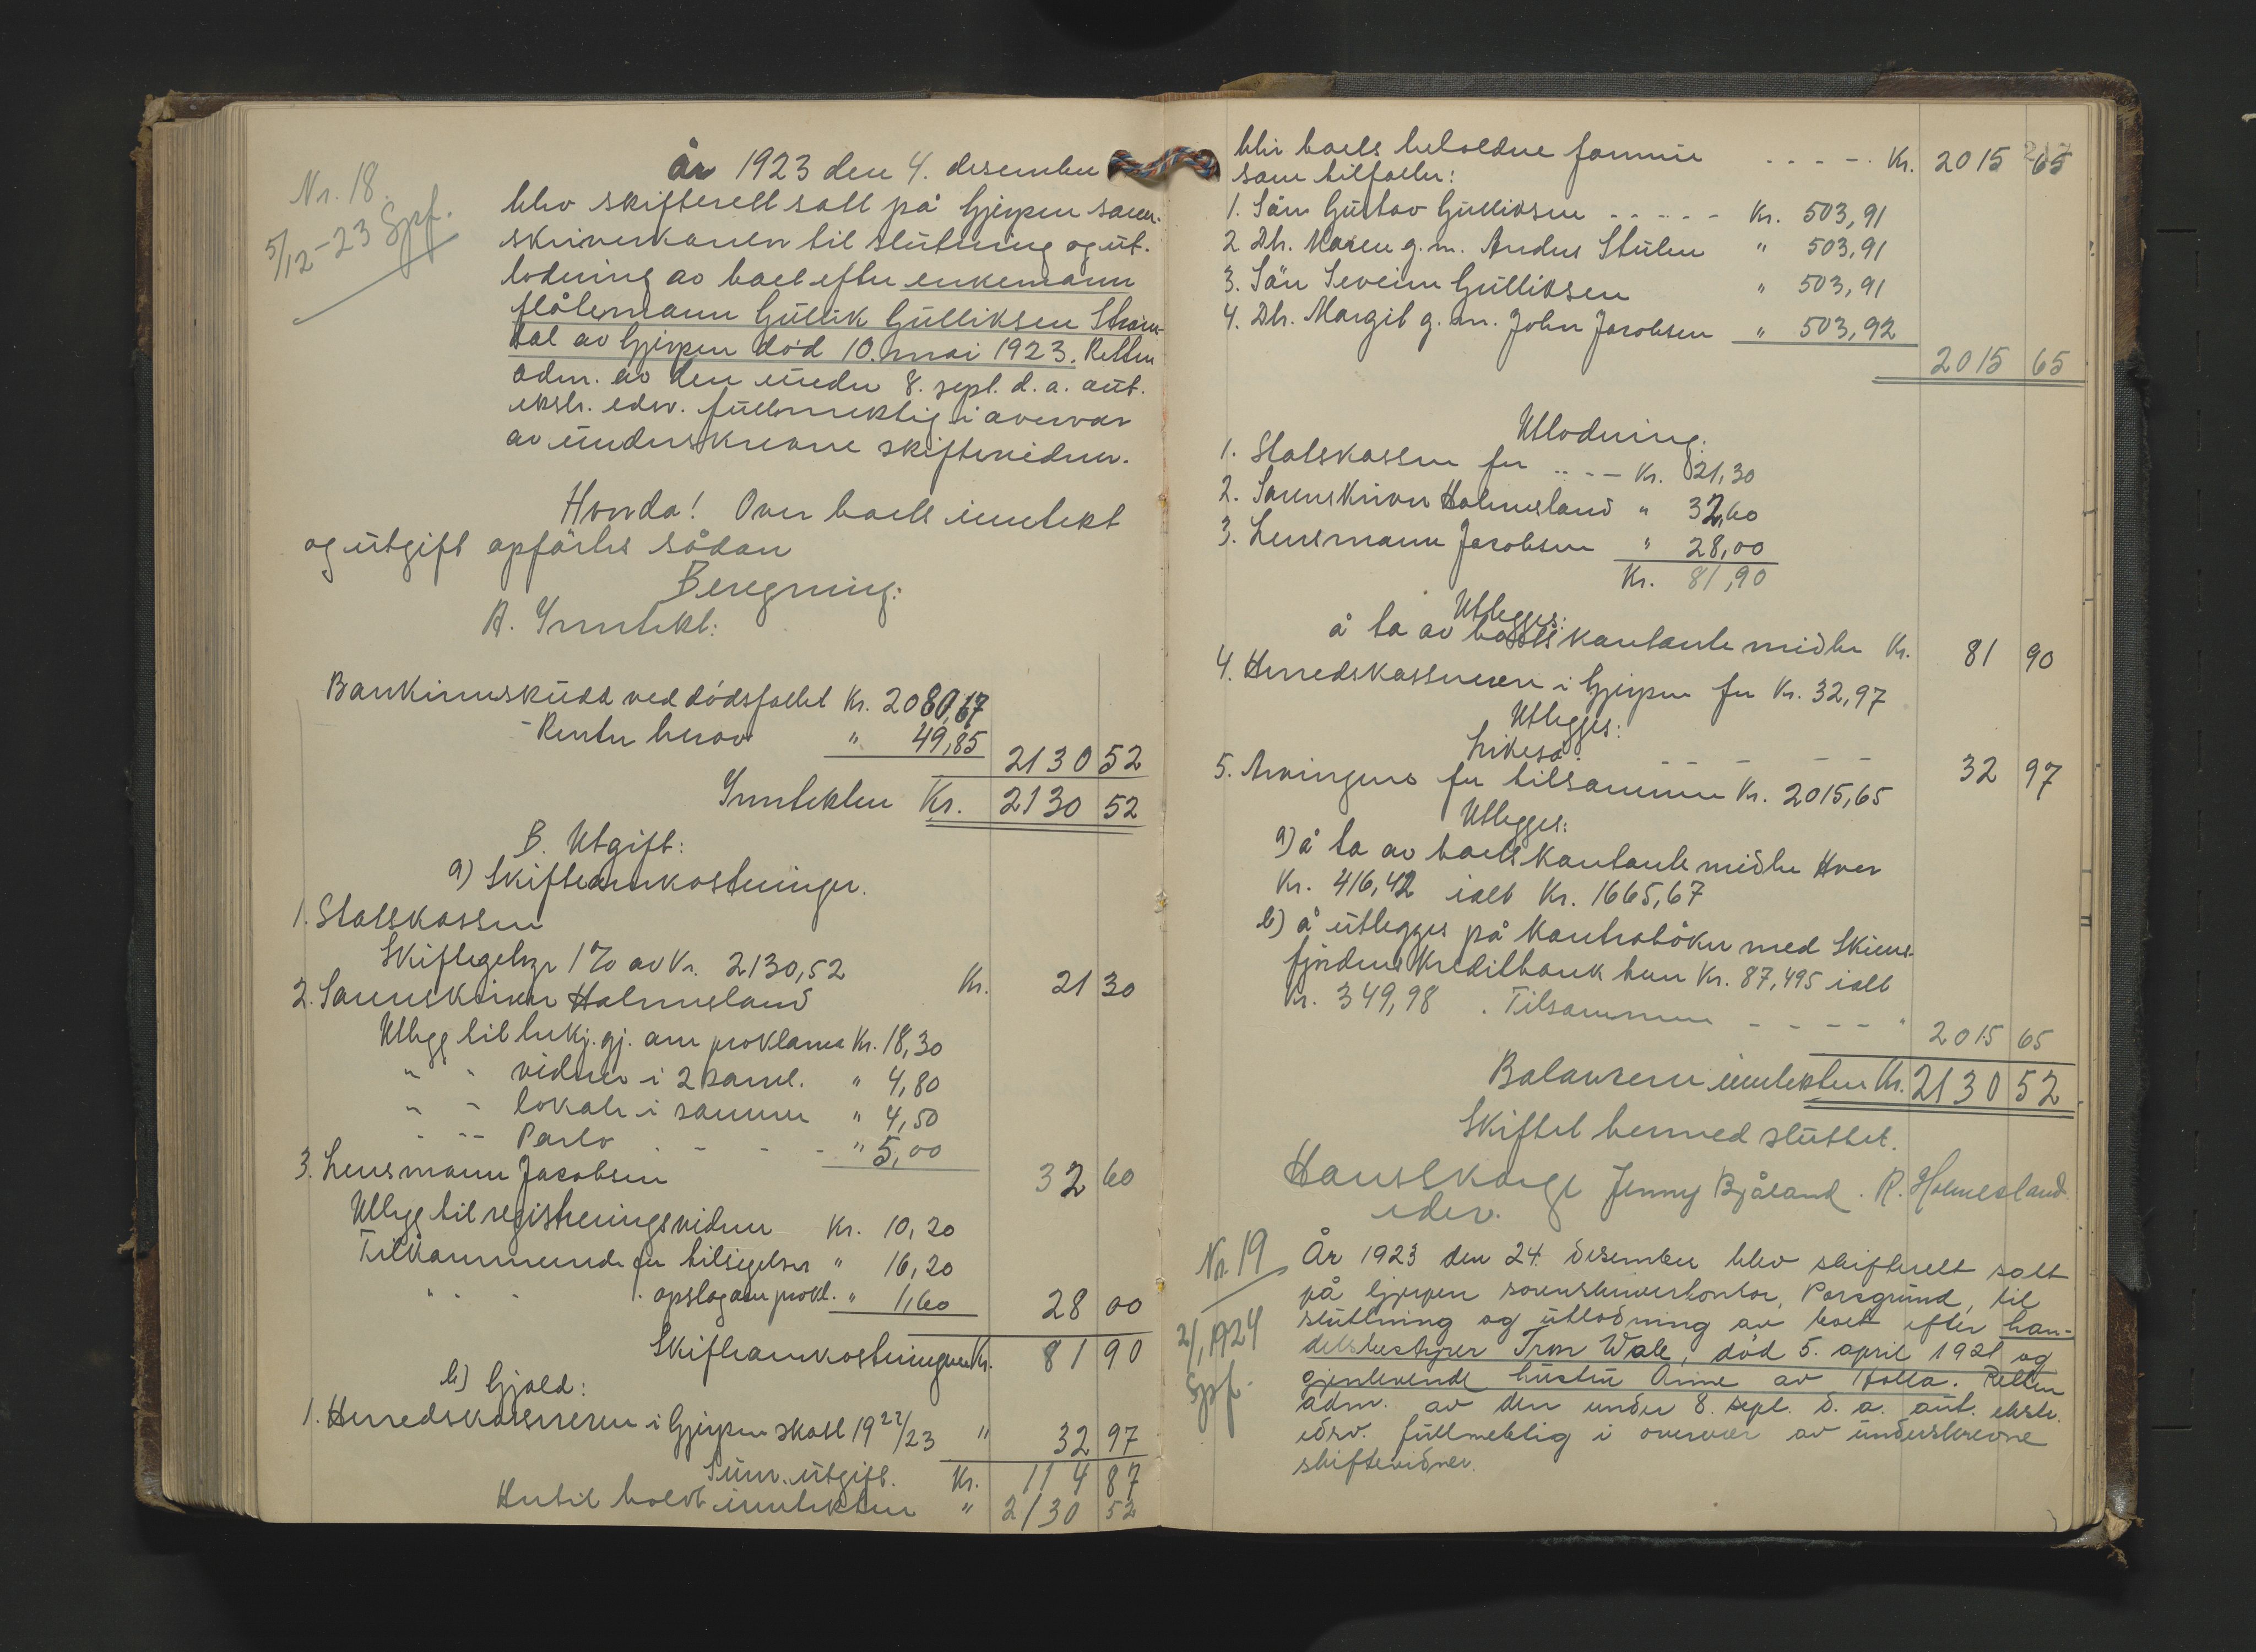 Nr. 18.
5/12-23 Spf.
År 1923 den 4. desember
blev skifterett satt på Gjerpen soren-
skriverkontor til slutning og ut-
lodning av boet efter enkemann
flåtemann Gullik Gulliksen Strøm-
dal av Gjerpen død 10. mai 1923. Retten
adm. av den under 8. sept. d. a. aut.
ekstr. edsv. fullmektig i overvær
av underskrevne skiftevidner.
Hvorda! Over boets inntekt
og utgift opførtes sådan
Beregning:
A. Inntekt:
Bankinnskudd ved dødsfallet Kr. 2080,67
- Renter herav " 49,85 2130 52
Inntekten Kr. 2130 52
B. Utgift:
a) Skifteomkostninger.
1. Statskassen
Skiftegebyr 1% av Kr. 2130,52 Kr. 21 30
2. Sorenskriver Holmesland
Utlegg til bekj. gj. om proklama Kr. 18,30
" " vidner i 2 saml. " 4,80
" " lokale i samme " 4,50
" " Porto - - - " 5,00 32 60
3. Lensmann Jacobsen
Utlegg til registreringsvidner Kr. 10,20
Tilkommende for tilsigelser " 16,20
" " " opslag om prokl. " 1,60 28 00
Skifteomkostningene Kr. 81 90
b) Gjeld:
1. Herredskassereren i Gjerpen skatt 1922/23 " 32 97
Sum utgift. Kr. 114 87
Hertil holdt inntekten " 2130 52
blir boets beholdne formue - - - - - Kr. 2015 65
217
som tilfaller:
1. Søn Gustav Gulliksen - - - - - Kr. 503,91
2 Dtr. Maren g. m. Anders Stulen " 503,91
3. Søn Severin Gulliksen " 503,91
4. Dtr. Margit g. m. John Jacobsen " 503,92
2015 65
Utlodning:
1. Statskassen for - - - Kr. 21,30
2. Sorenskriver Holmesland " 32,60
3. Lensmann Jacobsen " 28,00
Kr. 81,90
Utlegges:
å ta av boets kontante midler Kr. 81 90
4. Herredskassereren i Gjerpen for Kr. 32,97
Utlegges:
Likeså. - - - - - 32 97
5. Arvingene for tilsammen Kr. 2015,65
Utlegges:
a) å ta av boets kontante midler Hver
Kr. 416,42 ialt Kr. 1665,67
b) å utlegges på kontrabøker med Skiens-
fjordens Kreditbank hver Kr. 87,495 ialt
Kr. 349,98. Tilsammen - - - - " 2015 65
Balanserer inntekten Kr. 2130 52
Skiftet hermed sluttet.
Hans Skauge Jenny Bjåland. R. Holmesland.
edsv.
Nr 19
2/1, 1924
Spf.
År 1923 den 24. desember blev skifterett satt
på Gjerpen sorenskriverkontor, Porsgrund, til
sluttning og utlodning av boet efter han-
delsbestyrer Tron Wale, død 5. april 1921 og
gjenlevende hustru Anne av Holla. Retten
adm. av den under 8. sept. d. a. aut. ekstr.
edsv. fullmektig i overvær av underskrevne
skiftevidner.